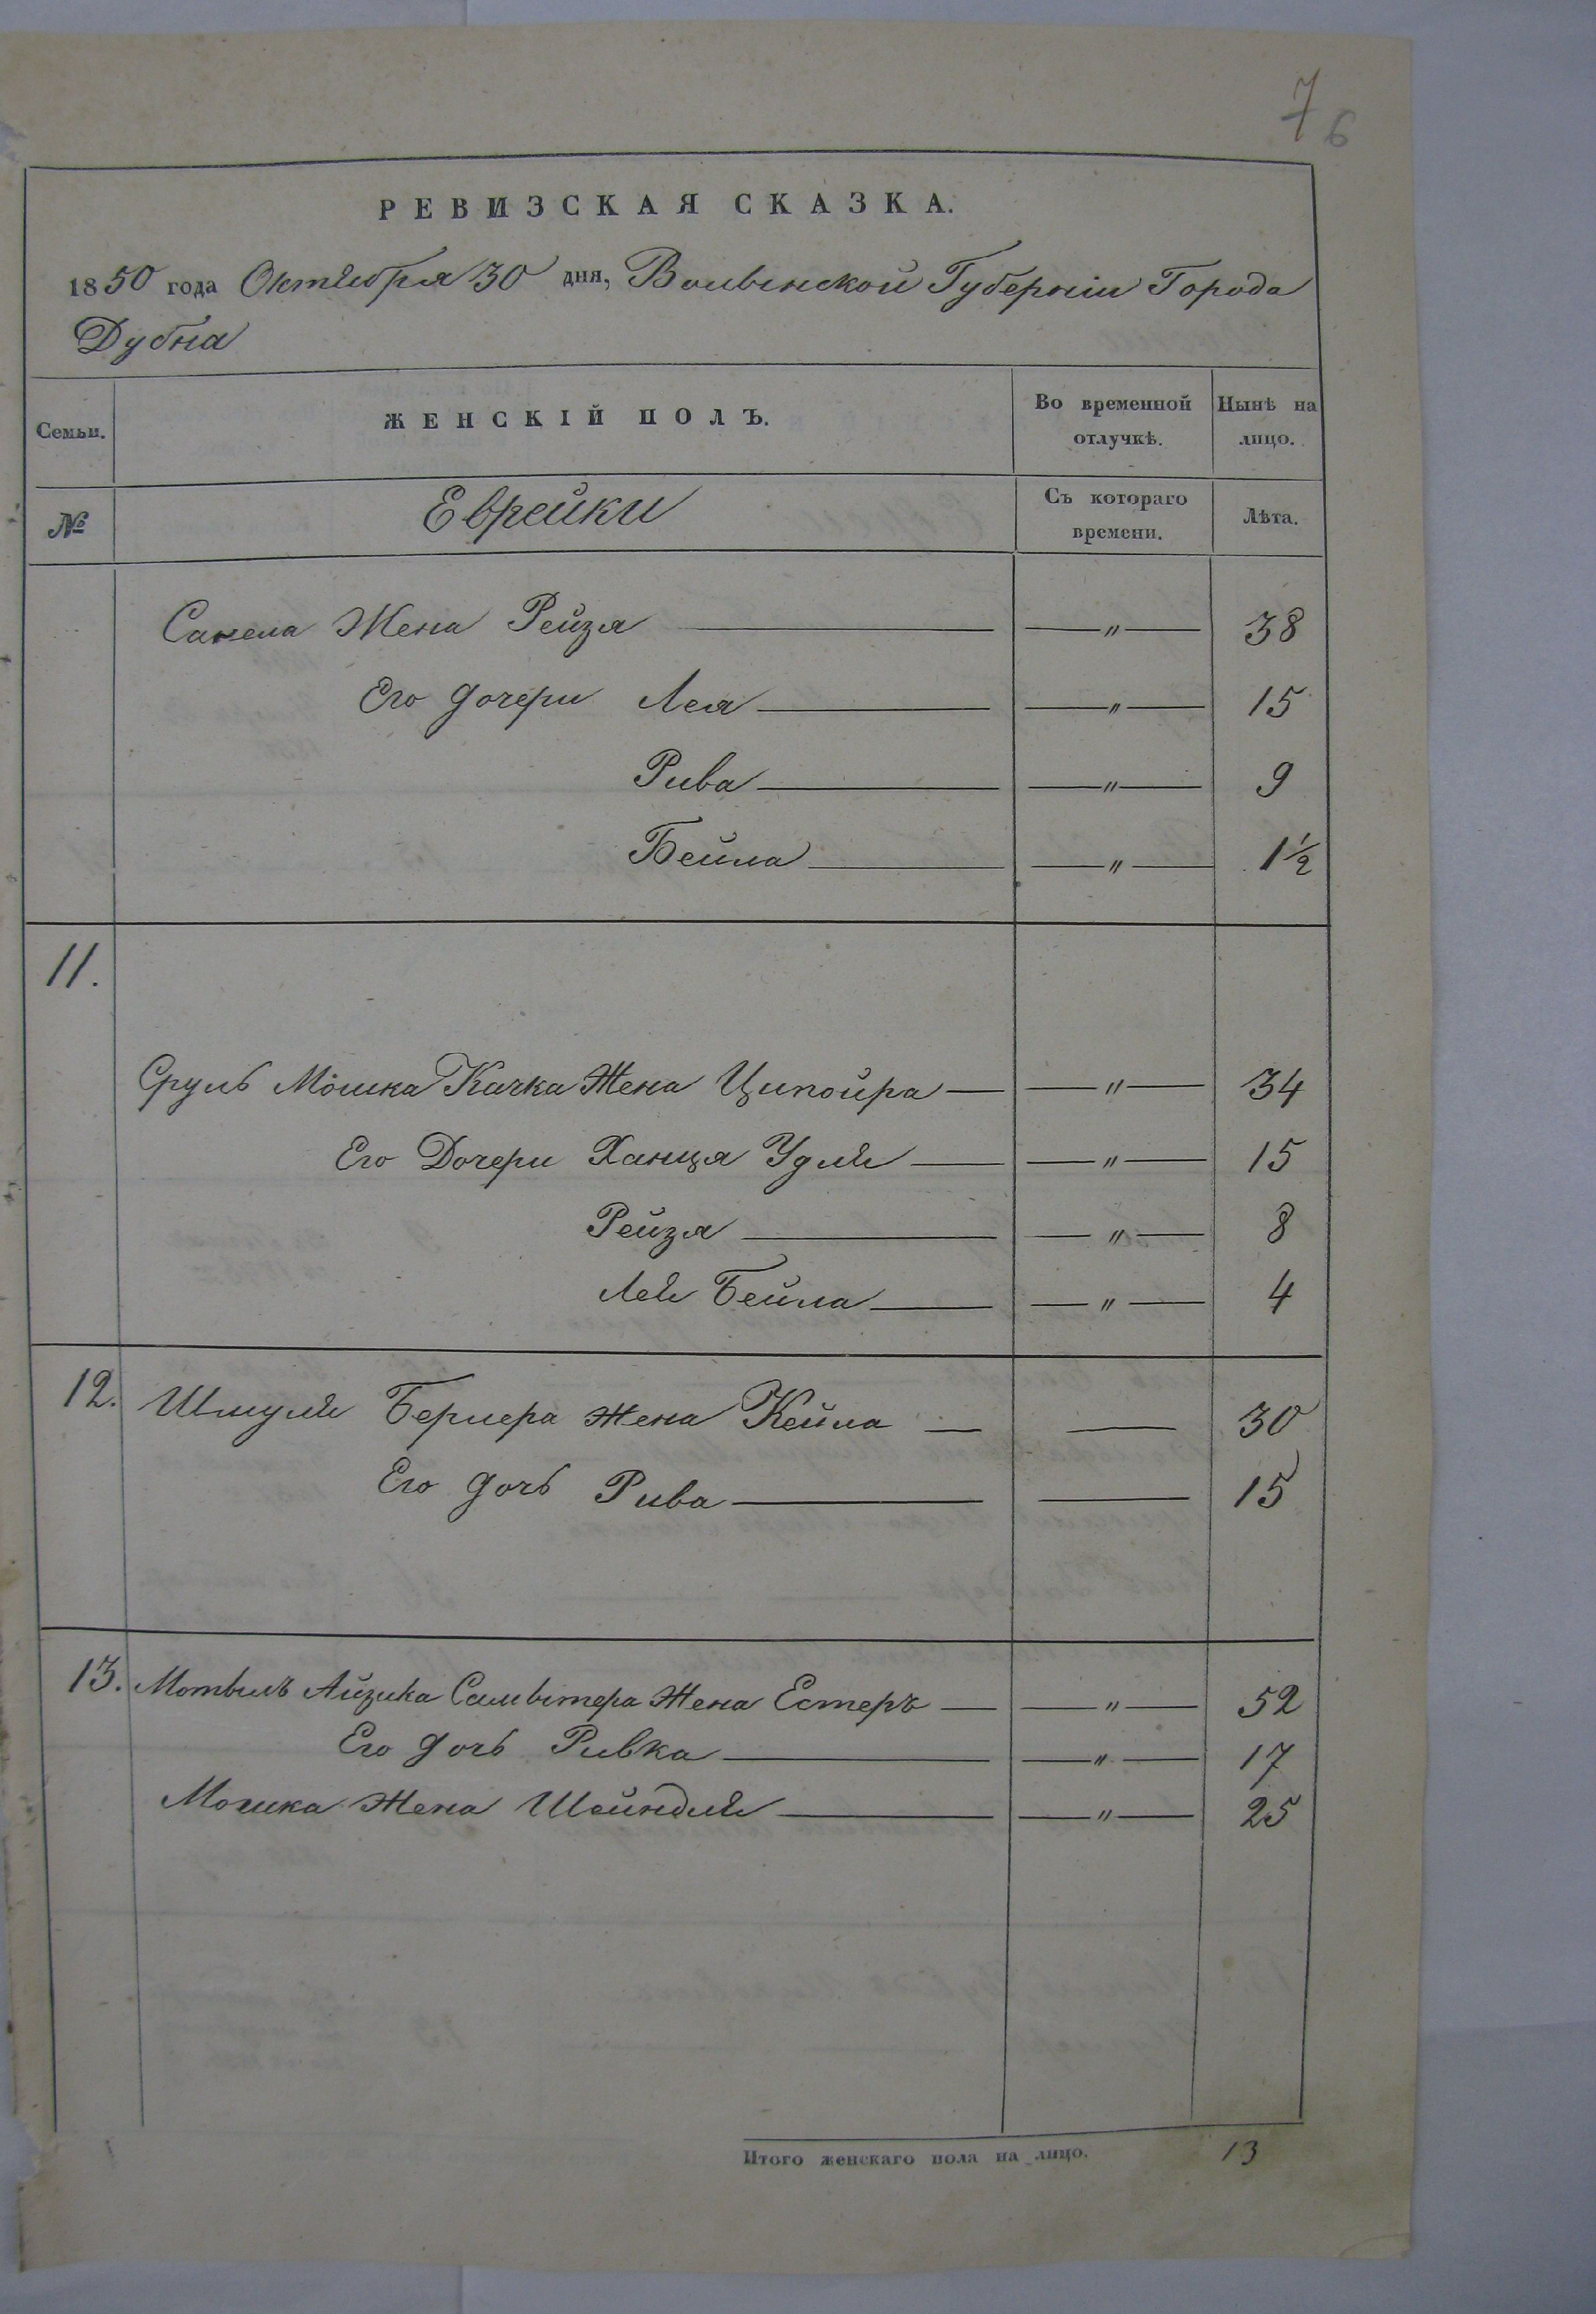 7 6
РЕВИЗСКАЯ СКАЗКА.
1850 года Октября 30 дня, Волынской Губерніи Города
Дубна
Семьи. ЖЕНСКІЙ ПОЛЪ. Во временной отлучкѣ. Нынѣ на лицо.
№ Еврейки Съ котораго времени. Лѣта.
Санела Жена Рейзя — " — 38
Его дочери Лея — " — 15
Рива — " — 9
Бейла — " — 1½
11.
Сруль Мошка Качка Жена Ципойра — " — 34
Его Дочери Ханця Удля — " — 15
Рейзя — " — 8
Лея Бейла — " — 4
12. Шмуля Бермера жена Кейла — — 30
Его дочь Рива — — 15
13. Мотыль Айзика Сальвтера Жена Естеръ — " — 52
Его дочь Ривка — " — 17
Мошка Жена Шейндля — " — 25
Итого женскаго пола на лицо. 13